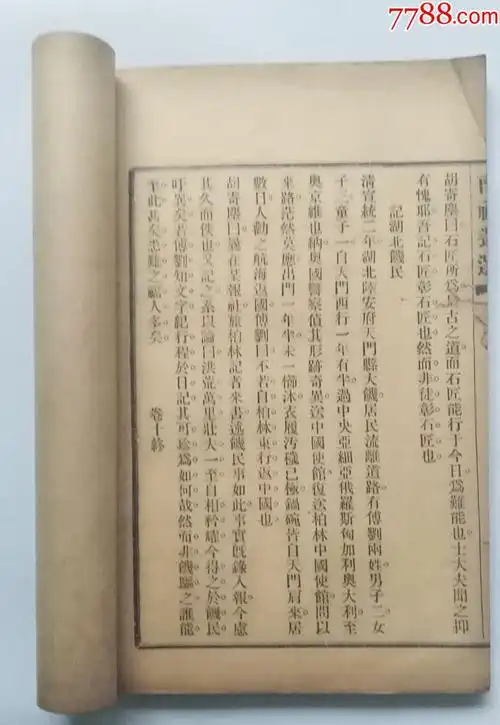 7788.com
胡寄塵曰石匠所爲爲古之道而石匠能行于今日爲難能也士大夫聞之抑
有愧耶吾記石匠彰石匠也然而非徒彰石匠也
記湖北饑民
清宣統二年湖北陸安府天門縣大饑居民流離道路有傅劉兩姓男子二女
子一童子一自天門西行一年有半過中央亞細亞俄羅斯匈加利奧大利至
奧京維也納奧國警察偵其形跡奇異送中國使館復送柏林中國使館問以
來路茫然莫應出門一年半未一櫛沐衣履汚穢已極鍋碗皆自天門肩來居
數日人勸之航海返國傅劉曰不若自柏林東行返中國也
胡寄塵曰曩在某報社旅柏林記者來書述饑民事如此事實旣錄入報今慮
其久而佚也又記之系以論曰洪荒萬里壯夫一至自相矜耀今得之於饑民
吁異矣若傅劉知文字紀行程於日記其可珍爲如何哉然而非饑驅之誰能
至此甚矣悉雖之福人多矣
卷十終